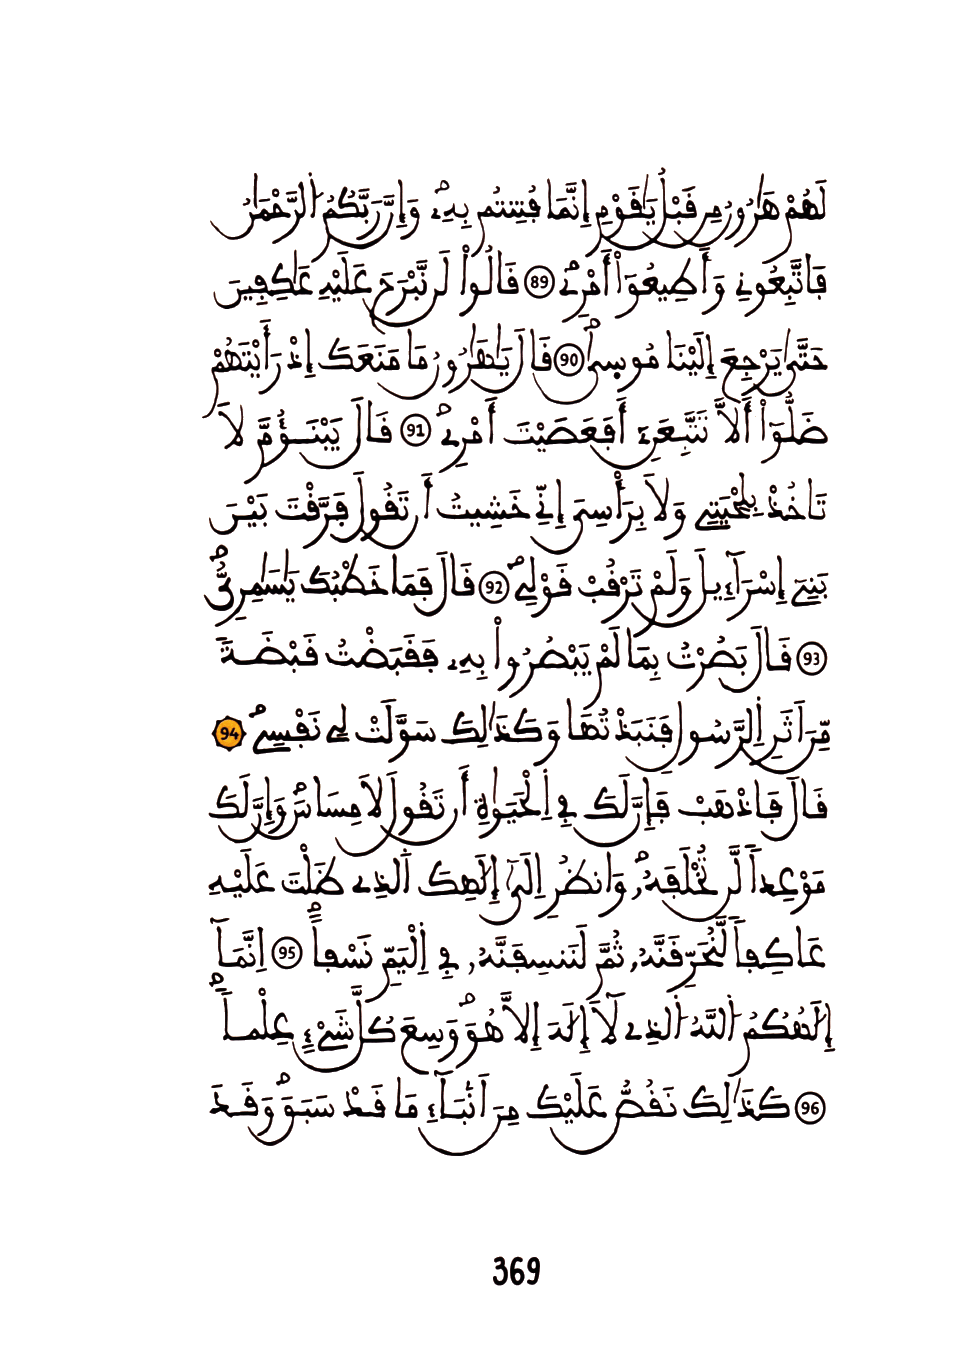 لَهُمْ هَٰرُونُ مِن قَبْلُ يَٰقَوْمِ إِنَّمَا فُتِنتُم بِهِۦۖ وَإِنَّ رَبَّكُمُ اُ۬لرَّحْمَٰنُ
فَاتَّبِعُونِے وَأَطِيعُوٓاْ أَمْرِےۖ 89 قَالُواْ لَن نَّبْرَحَ عَلَيْهِ عَٰكِفِينَ
حَتَّىٰ يَرْجِعَ إِلَيْنَا مُوس۪ىٰۖ 90 قَالَ يَٰهَٰرُونُ مَا مَنَعَكَ إِذْ رَأَيْتَهُمْ
ضَلُّوٓاْ أَلَّا تَتَّبِعَنِۦٓ أَفَعَصَيْتَ أَمْرِےۖ 91 قَالَ يَبْنَؤُمَّ لَا
تَاخُذْ بِلِحْيَتِے وَلَا بِرَأْسِيَ إِنِّے خَشِيتُ أَن تَقُولَ فَرَّقْتَ بَيْنَ
بَنِےٓ إِسْرَآءِيلَ وَلَمْ تَرْقُبْ قَوْلِےۖ 92 قَالَ فَمَا خَطْبُكَ يَٰسَٰمِرِيُّۖ
93 قَالَ بَصُرْتُ بِمَا لَمْ يَبْصُرُواْ بِهِۦ فَقَبَضْتُ قَبْضَةٗ
مِّنَ اَثَرِ اِ۬لرَّسُولِ فَنَبَذْتُهَا وَكَذَٰلِكَ سَوَّلَتْ لِے نَفْسِےۖ 94
قَالَ فَاذْهَبْ فَإِنَّ لَكَ فِے اِ۬لْحَيَوٰةِ أَن تَقُولَ لَا مِسَاسَۖ وَإِنَّ لَكَ
مَوْعِداٗ لَّن تُخْلَفَهُۥۖ وَانظُرِ اِلَىٰٓ إِلَٰهِكَ اَ۬لذِے ظَلْتَ عَلَيْهِ
عَاكِفاٗ لَّنُحَرِّقَنَّهُۥ ثُمَّ لَنَنسِفَنَّهُۥ فِے اِ۬لْيَمِّ نَسْفاًۖ 95 اِنَّمَآ
إِلَٰهُكُمُ اُ۬للَّهُ اُ۬لذِے لَآ إِلَٰهَ إِلَّا هُوَۖ وَسِعَ كُلَّ شَےْءٍ عِلْماٗۖ
96 كَذَٰلِكَ نَقُصُّ عَلَيْكَ مِنَ اَنۢبَآءِ مَا قَدْ سَبَقَۖ وَقَدَ
369